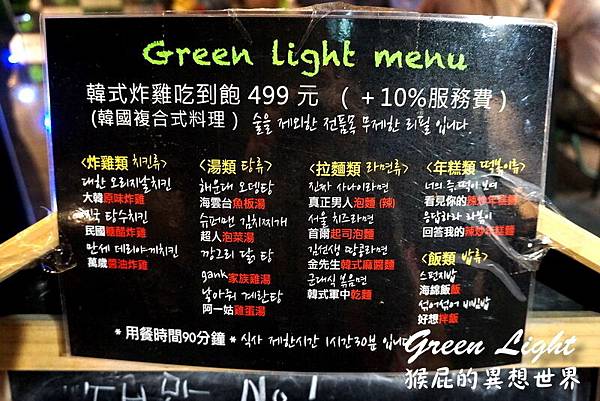 Green light menu
韓式炸雞吃到飽 499 元 （＋10%服務費）
(韓國複合式料理) 술을 제외한 전품목 무제한 리필 입니다.
<炸雞類 치킨류>
대한 오리지날치킨
大韓原味炸雞
민국 탕수치킨
民國糖醋炸雞
만세 데리야끼치킨
萬歲醬油炸雞
<湯類 탕류>
해운대 오뎅탕
海雲台魚板湯
슈퍼맨 김치찌개
超人泡菜湯
깡그리 닭 탕
gank家族雞湯
날아줘 계란탕
阿一姑雞蛋湯
<拉麵類 라면류>
진짜 사나이라면
真正男人泡麵 (辣)
서울 치즈라면
首爾起司泡麵
김선생 땅콩라면
金先生韓式麻醬麵
군대식 볶음면
韓式軍中乾麵
<年糕類 떡볶이류>
너의 즉.떡이 보여
看見你的辣炒年糕麵
응답하라 라볶이
回答我的辣炒年糕麵
<飯類 밥류>
스펀지밥
海綿飯飯
섞어섞어 비빔밥
好想拌飯
* 用餐時間90分鐘 * 식사 제한시간 1시간30분 입니다
Green Light
猴屁的異想世界
No.1